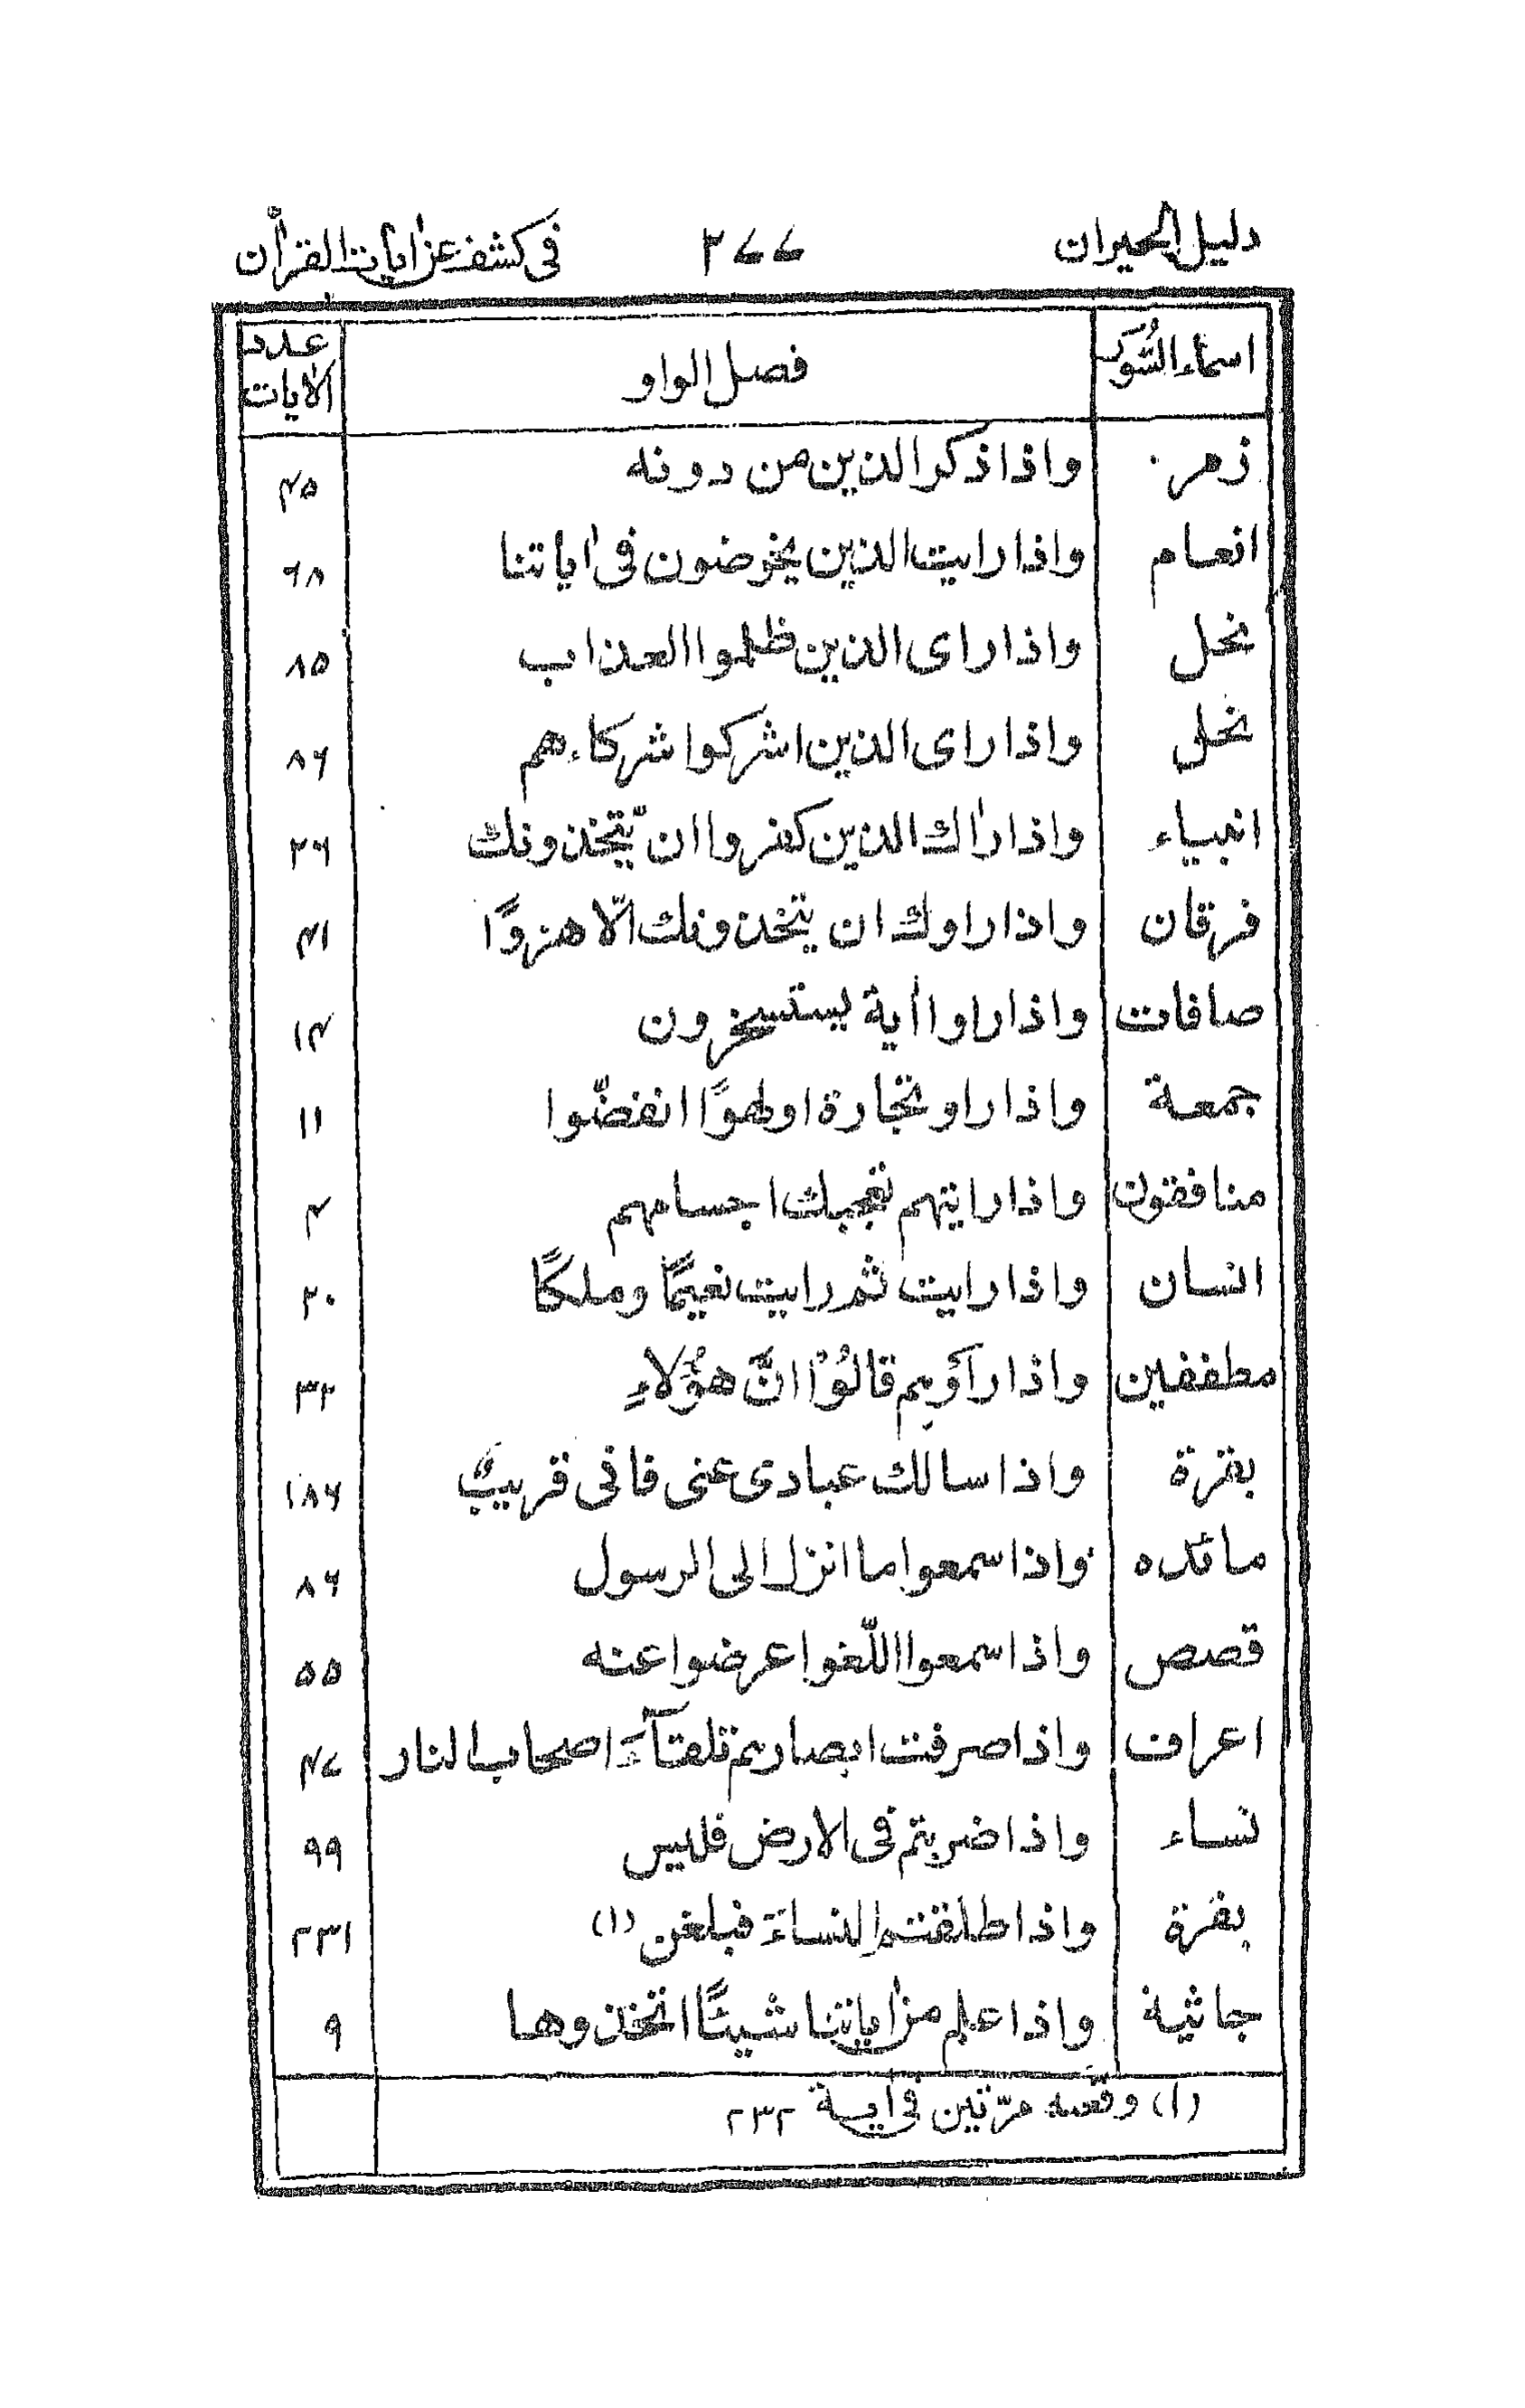 دليل الحيران ٢٧٧ فى كشف عن اٰيات القراٰن
اسماء السُّوَر فصل الواو عدد الايات
زمر واذا ذكر الذين من دونه ٤٥
انعام واذا رايت الذين يخوضون فى اٰياتنا ٦٨
نحل واذا راى الذين ظلموا العذاب ٨٥
نحل واذا راى الذين اشركوا شركاءهم ٨٦
انبياء واذا راٰك الذين كفروا ان يّتخذونك ٣٦
فرقان واذا راوك ان يتخذونك الّا هزوًا ٤١
صافات واذا راوا اٰية يستسخرون ١٤
جمعة واذا راو تجارة او لهوًا انفضّوا ١١
منافقون واذا رايتهم تعجبك اجسامهم ٤
انسان واذا رايت ثم رايت نعيمًا وملكًا ٢٠
مطففين واذا رَاَوْهم قالُوْٓا انَّ هٰٓؤُلاءِ ٣٢
بقرة واذا سالك عبادى عنى فانى قريبٌ ١٨٦
مائده واذا سمعوا ما انزل الى الرسول ٨٦
قصص واذا سمعوا اللّغو اعرضوا عنه ٥٥
اعراف واذا صرفت ابصارهم تلقآءَ اصحاب النار ٤٧
نساء واذا ضربتم فى الارض فليس ٩٩
بقرة واذا طلقتم النساءَ فبلغن (١) ٢٣١
جاثية واذا علم من اٰياتنا شيئًا اتخذوها ٩
(١) وقعه مرّتين فى اٰية ٢٣٢